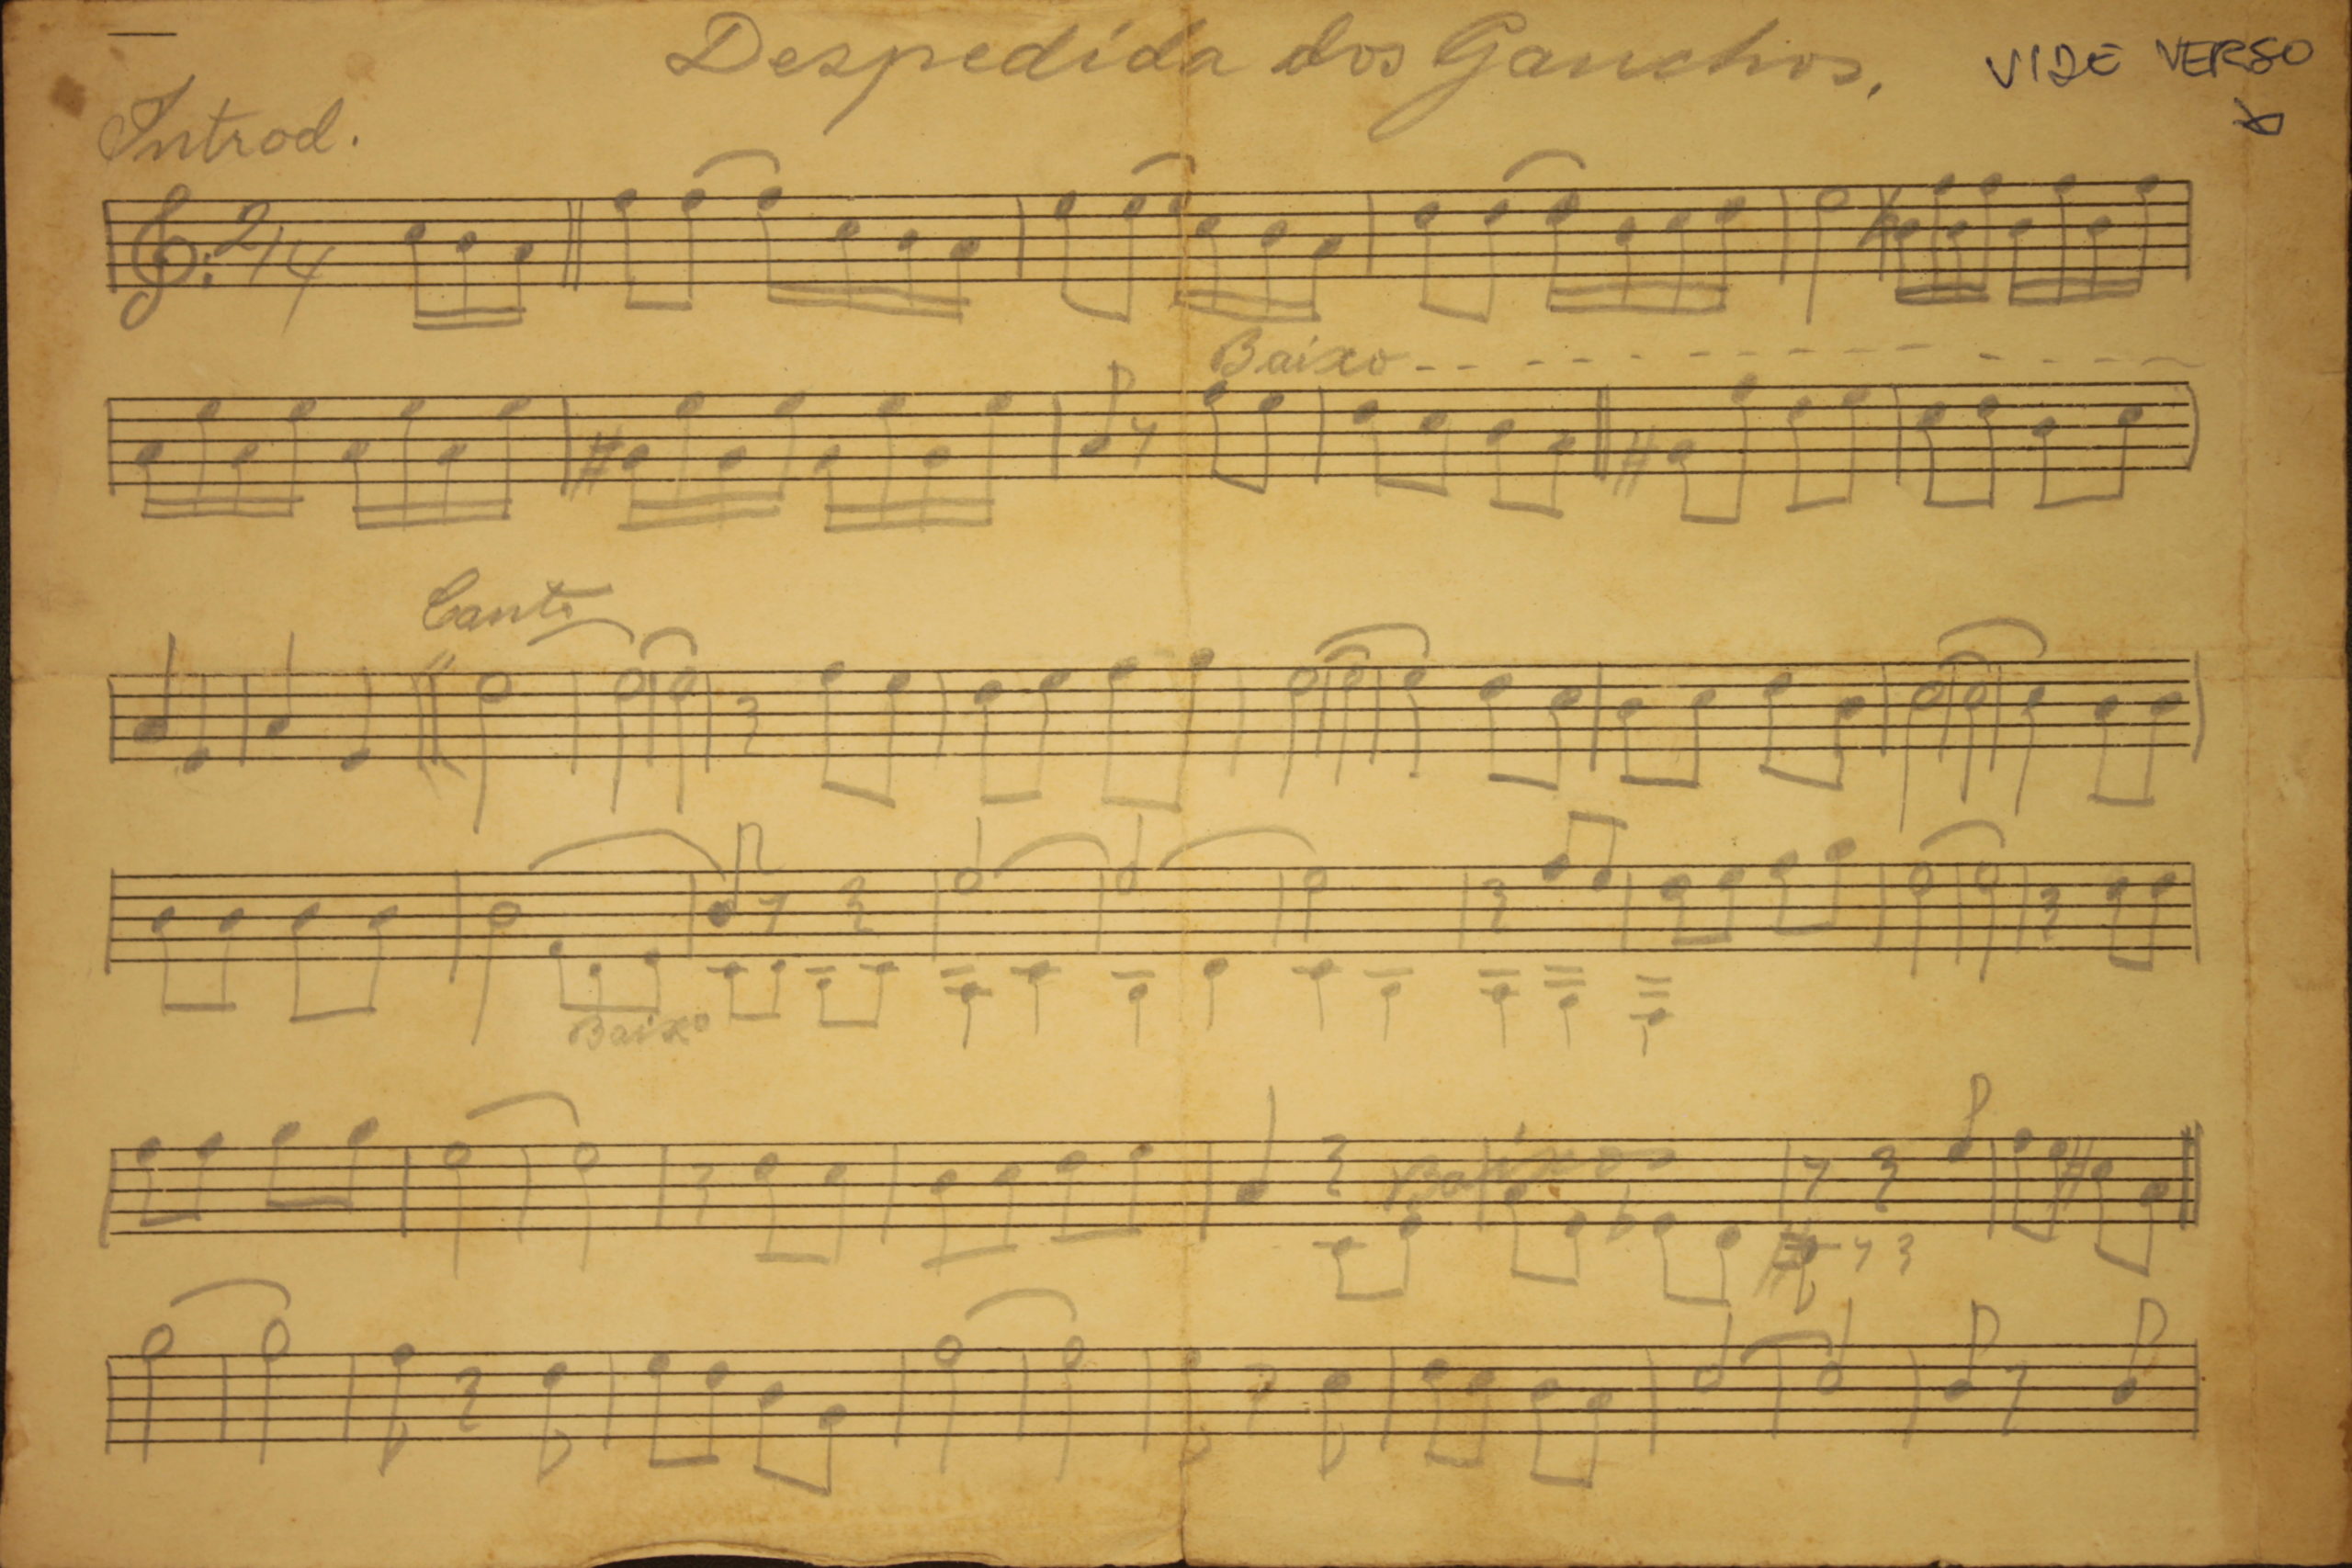 Despedida dos Gauchos,
VIDE VERSO
Introd.
2/4
Baixo
Canto
Baixo
Baixos